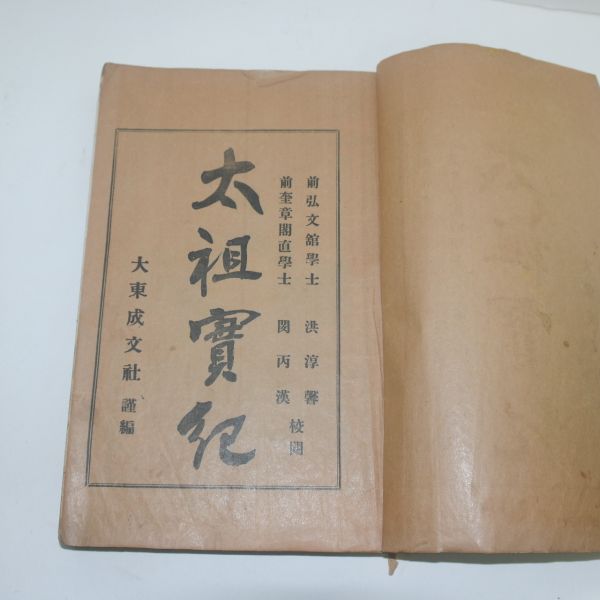 前弘文館學士 洪淳馨
前奎章閣直學士 閔丙漢
校閱
太祖實紀
大東成文社 謹編